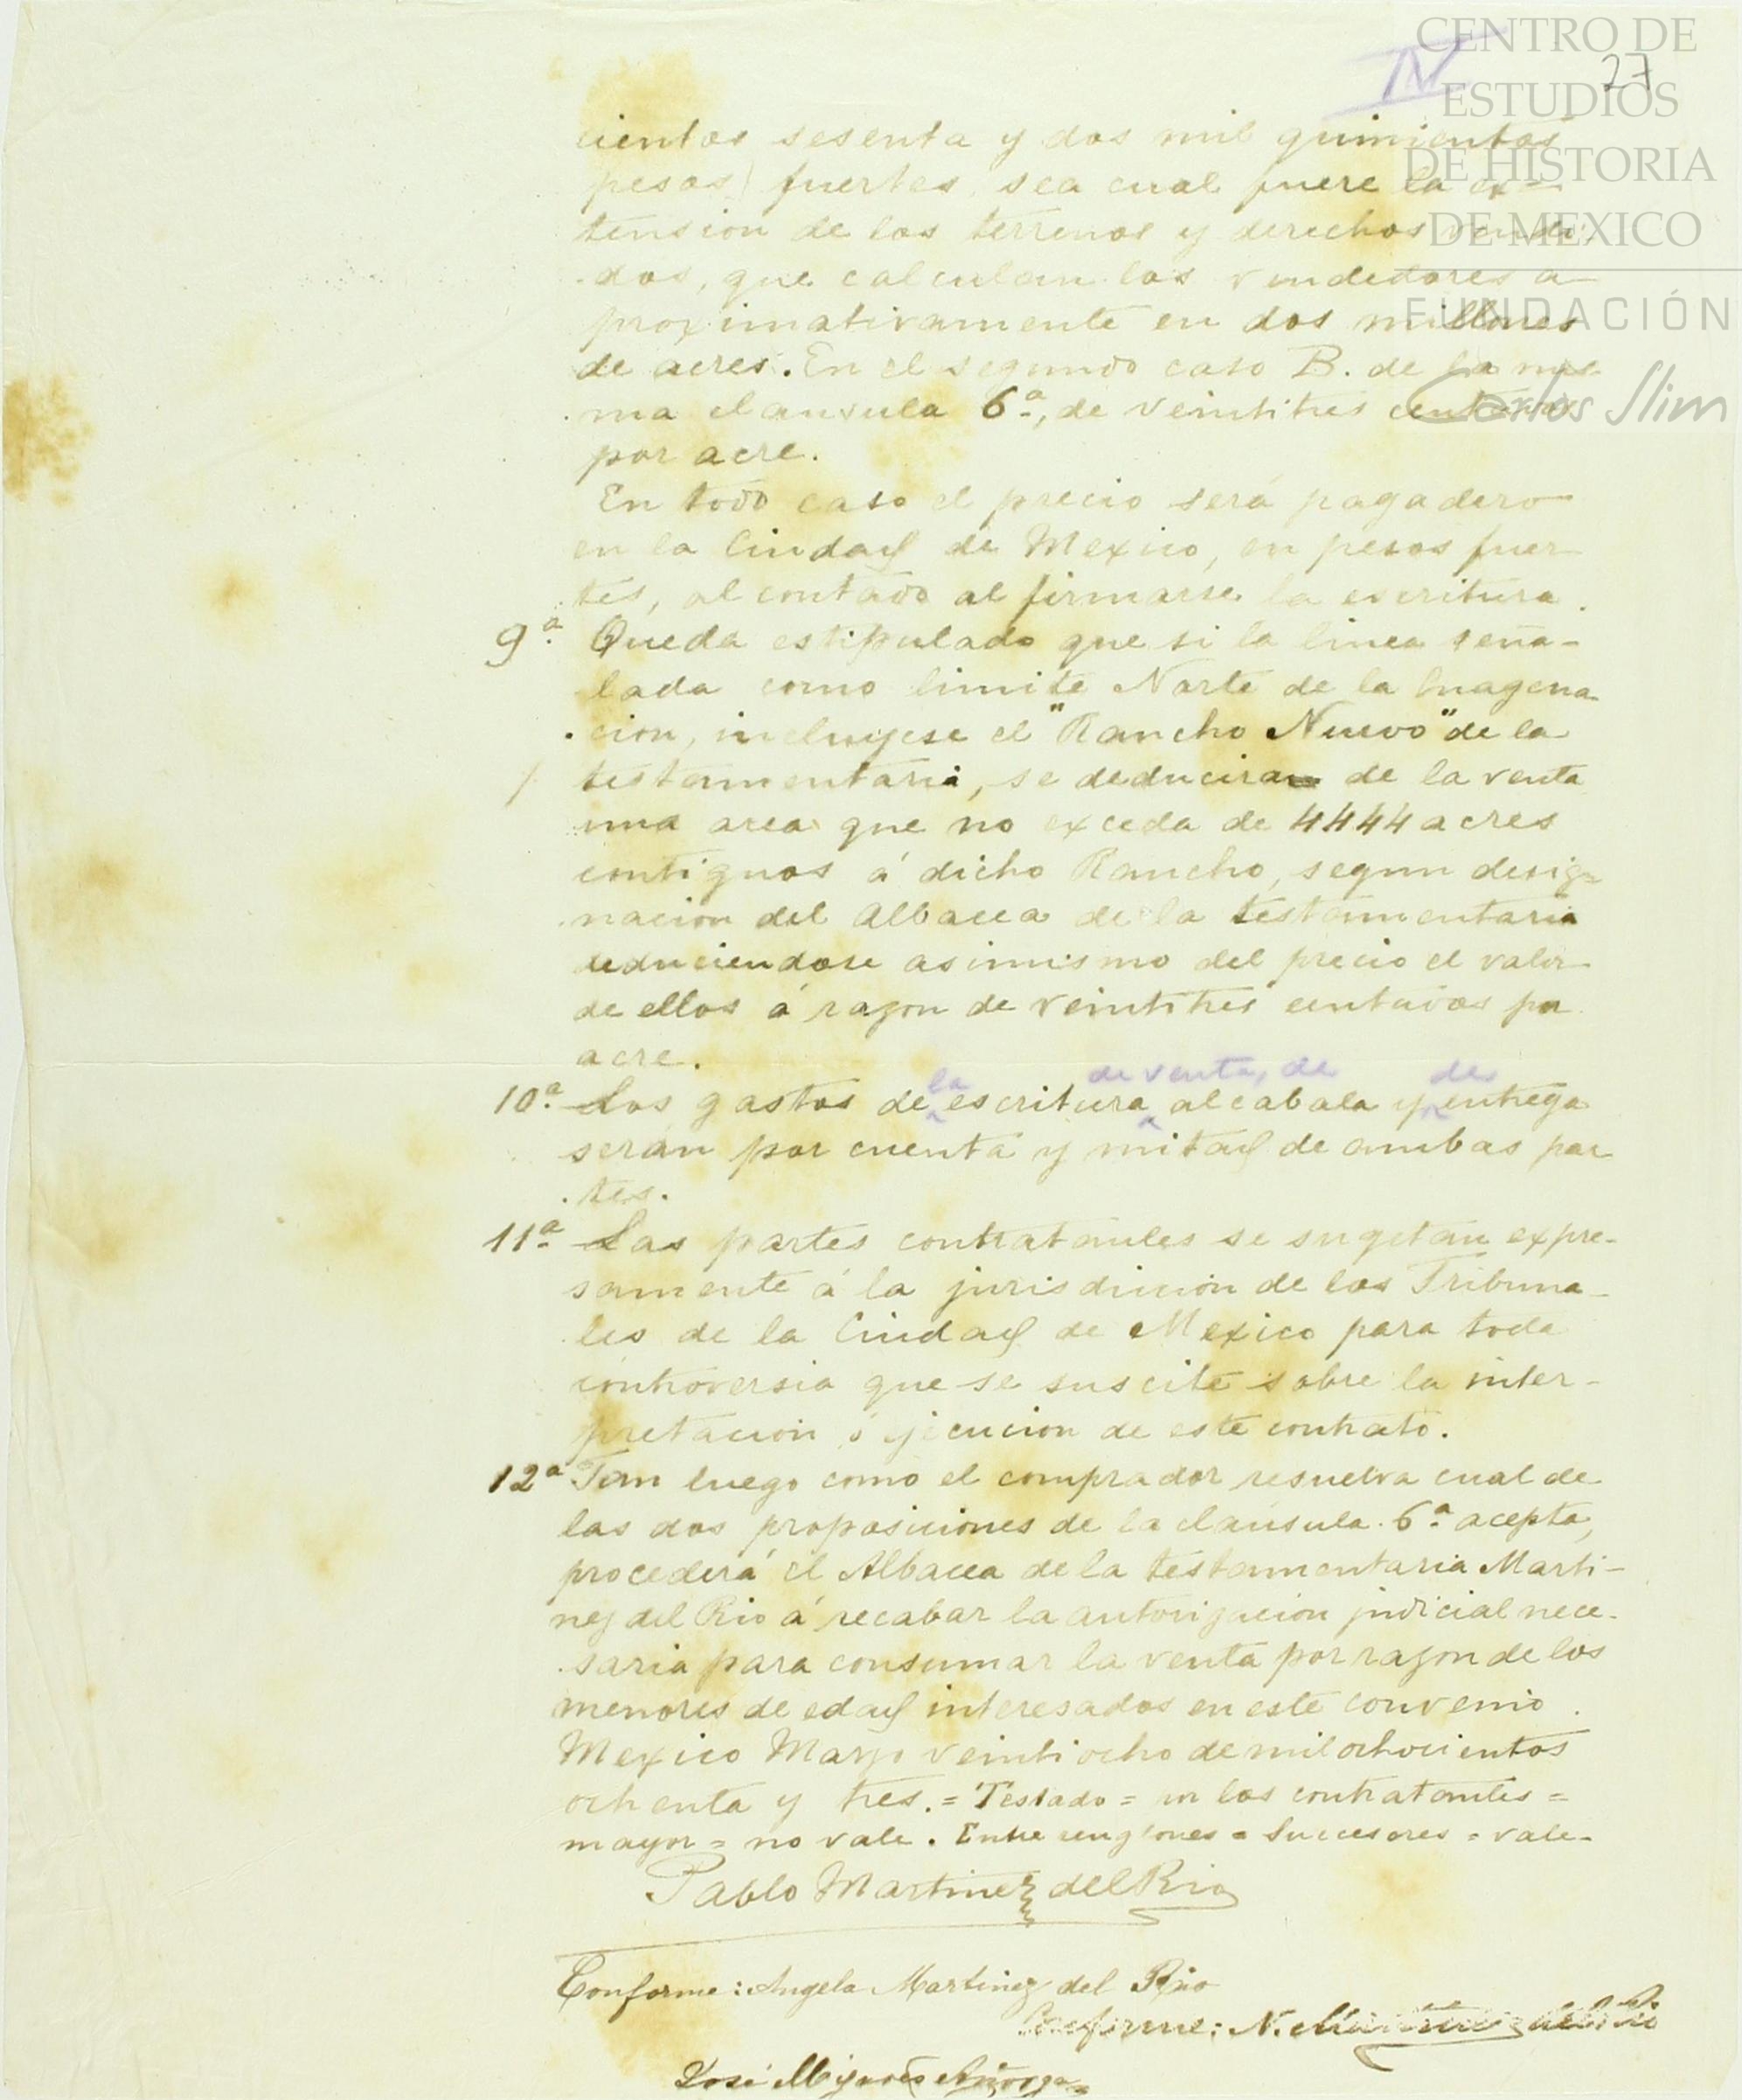 CENTRO DE
ESTUDIOS
DE HISTORIA
DE MEXICO
FUNDACIÓN
Carlos Slim
IV
27
cientos sesenta y dos mil quinientos
pesos) fuertes, sea cual fuere la ex=
tension de los terrenos y derechos vendi-
dos, que calculan los vendedores a
proximativamente en dos millones
de acres. En el segundo caso B. de la mis
ma clausula 6ª, de veintitres centavos
por acre.
En todo caso el precio será pagadero
en la Ciudad de Mexico, en pesos fuer
tes, al contado al firmarse la escritura.
9ª. Queda estipulado que si la linea seña-
lada como limite Norte de la Enagena
cion, incluyese el "Rancho Nuevo" de la
testamentaria, se deducira de la venta
una area que no exceda de 4444 acres
contiguos á dicho Rancho, segun desig=
nacion del Albacea de la testamentaria
deduciendose asimismo del precio el valor
de ellos á razon de veintitres centavos por
acre.
10ª. Los gastos de la escritura de venta, de alcabala y de entrega
serán por cuenta y mitad de ambas par
tes.
11ª. Las partes contratantes se sugetan expre-
samente á la jurisdiccion de los Tribuna-
les de la Ciudad de Mexico para toda
controversia que se suscite sobre la inter-
pretacion ó ejecucion de este contrato.
12ª Tan luego como el comprador resuelva cual de
las dos proposiciones de la clausula 6ª. acepta,
procederá el Albacea de la testamentaria Marti-
nez del Rio á recabar la autorizacion judicial nece-
saria para consumar la venta por razon de los
menores de edad interesados en este convenio.
Mexico Marzo veintiocho de mil ochocientos
ochenta y tres. = Testado = in los contratantes =
mayor = no vale. Entre renglones = Succesores = vale-
Pablo Martinez del Rio
Conforme: Angela Martinez del Rio
Conforme: N. Martinez del Rio
José